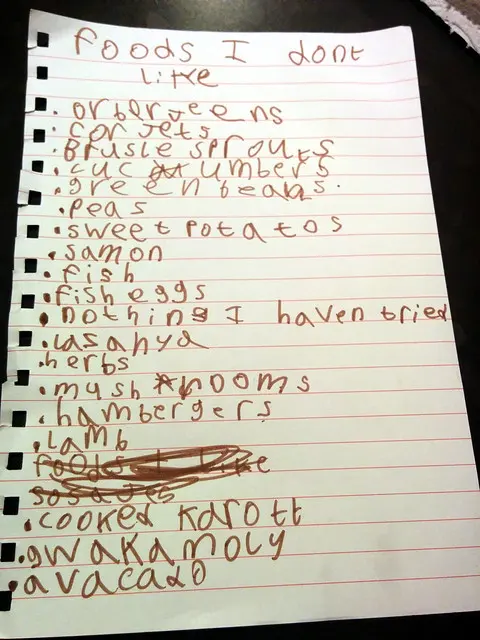 foods I dont
like
. orberjeens
. corjets
. Brusle sprouts
. cucumbers
. green beans.
. peas
. sweet potatos
. samon
. fish
. fish eggs
. nothing I haven tried
. lasanya
. herbs
. mushrooms
. hambergers
. lamb
foods I like
sosajes
. cooked karott
. gwakamoly
. avacado